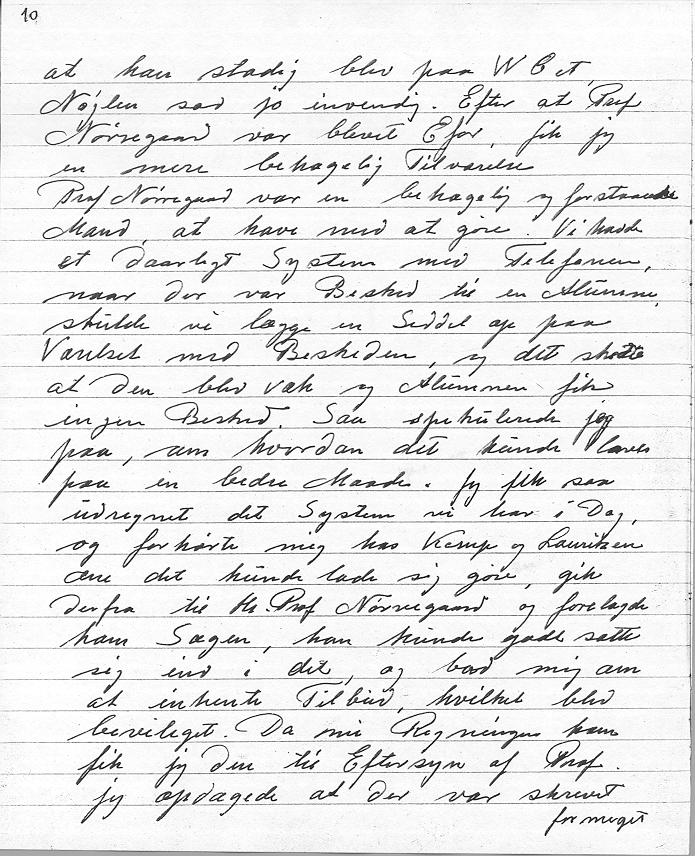 10
at han stadig blev paa W C et,
Nøjlen sad jo invendig. Efter at Prof
Nørregaard var blevet Efor, fik jeg
en mere behagelig Tilværelse
Prof Nørregaard var en behagelig og forstaaende
Mand, at have med at gøre. Vi havde
et daarligt System med Telefonen,
naar der var Besked til en Alumne,
skulde vi lægge en Seddel op paa
Værelset med Beskeden, og det skete
at den blev væk og Alumnen fik
ingen Besked. Saa spekulerede jeg
paa, om hvordan det kunde laves
paa en bedre Maade. Jeg fik saa
udregnet det System vi har i Dag,
og forhørte mig hos Kemp og Lauritzen
om det kunde lade sig gøre, gik
derfra til Hr. Prof Nørregaard og forelagde
ham Sagen, han kunde godt sætte
sig ind i det, og bad mig om
at inhente Tilbud, hvilket blev
bevilget. Da nu Regningen kom
fik jeg den til Eftersyn af Prof.
jeg opdagede at der var skrevet
for meget